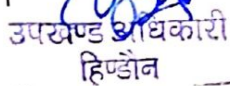 उपखण्ड अधिकारी
हिण्डौन